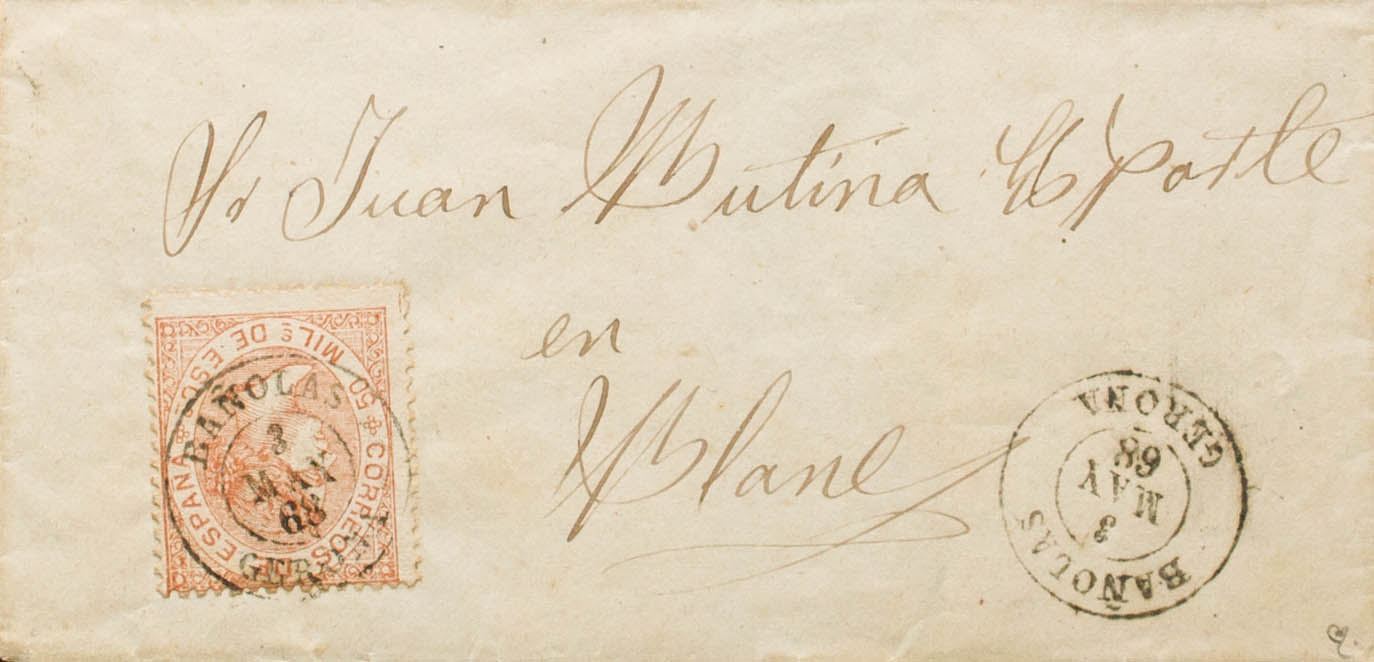 Sr Juan Mutina Esparte
en
Blanes
50 MILS DE ESCO
CORREOS
ESPAÑA
BAÑOLAS
3
MAY
68
GERONA
BAÑOLAS
3
MAY
68
GERONA